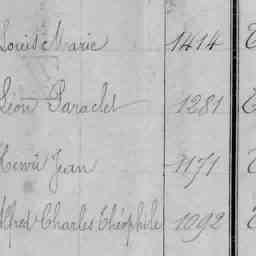 Louis Marie 1414
Léon Paraclet 1281
Henri Jean 1171
Alfred Charles Théophile 1092